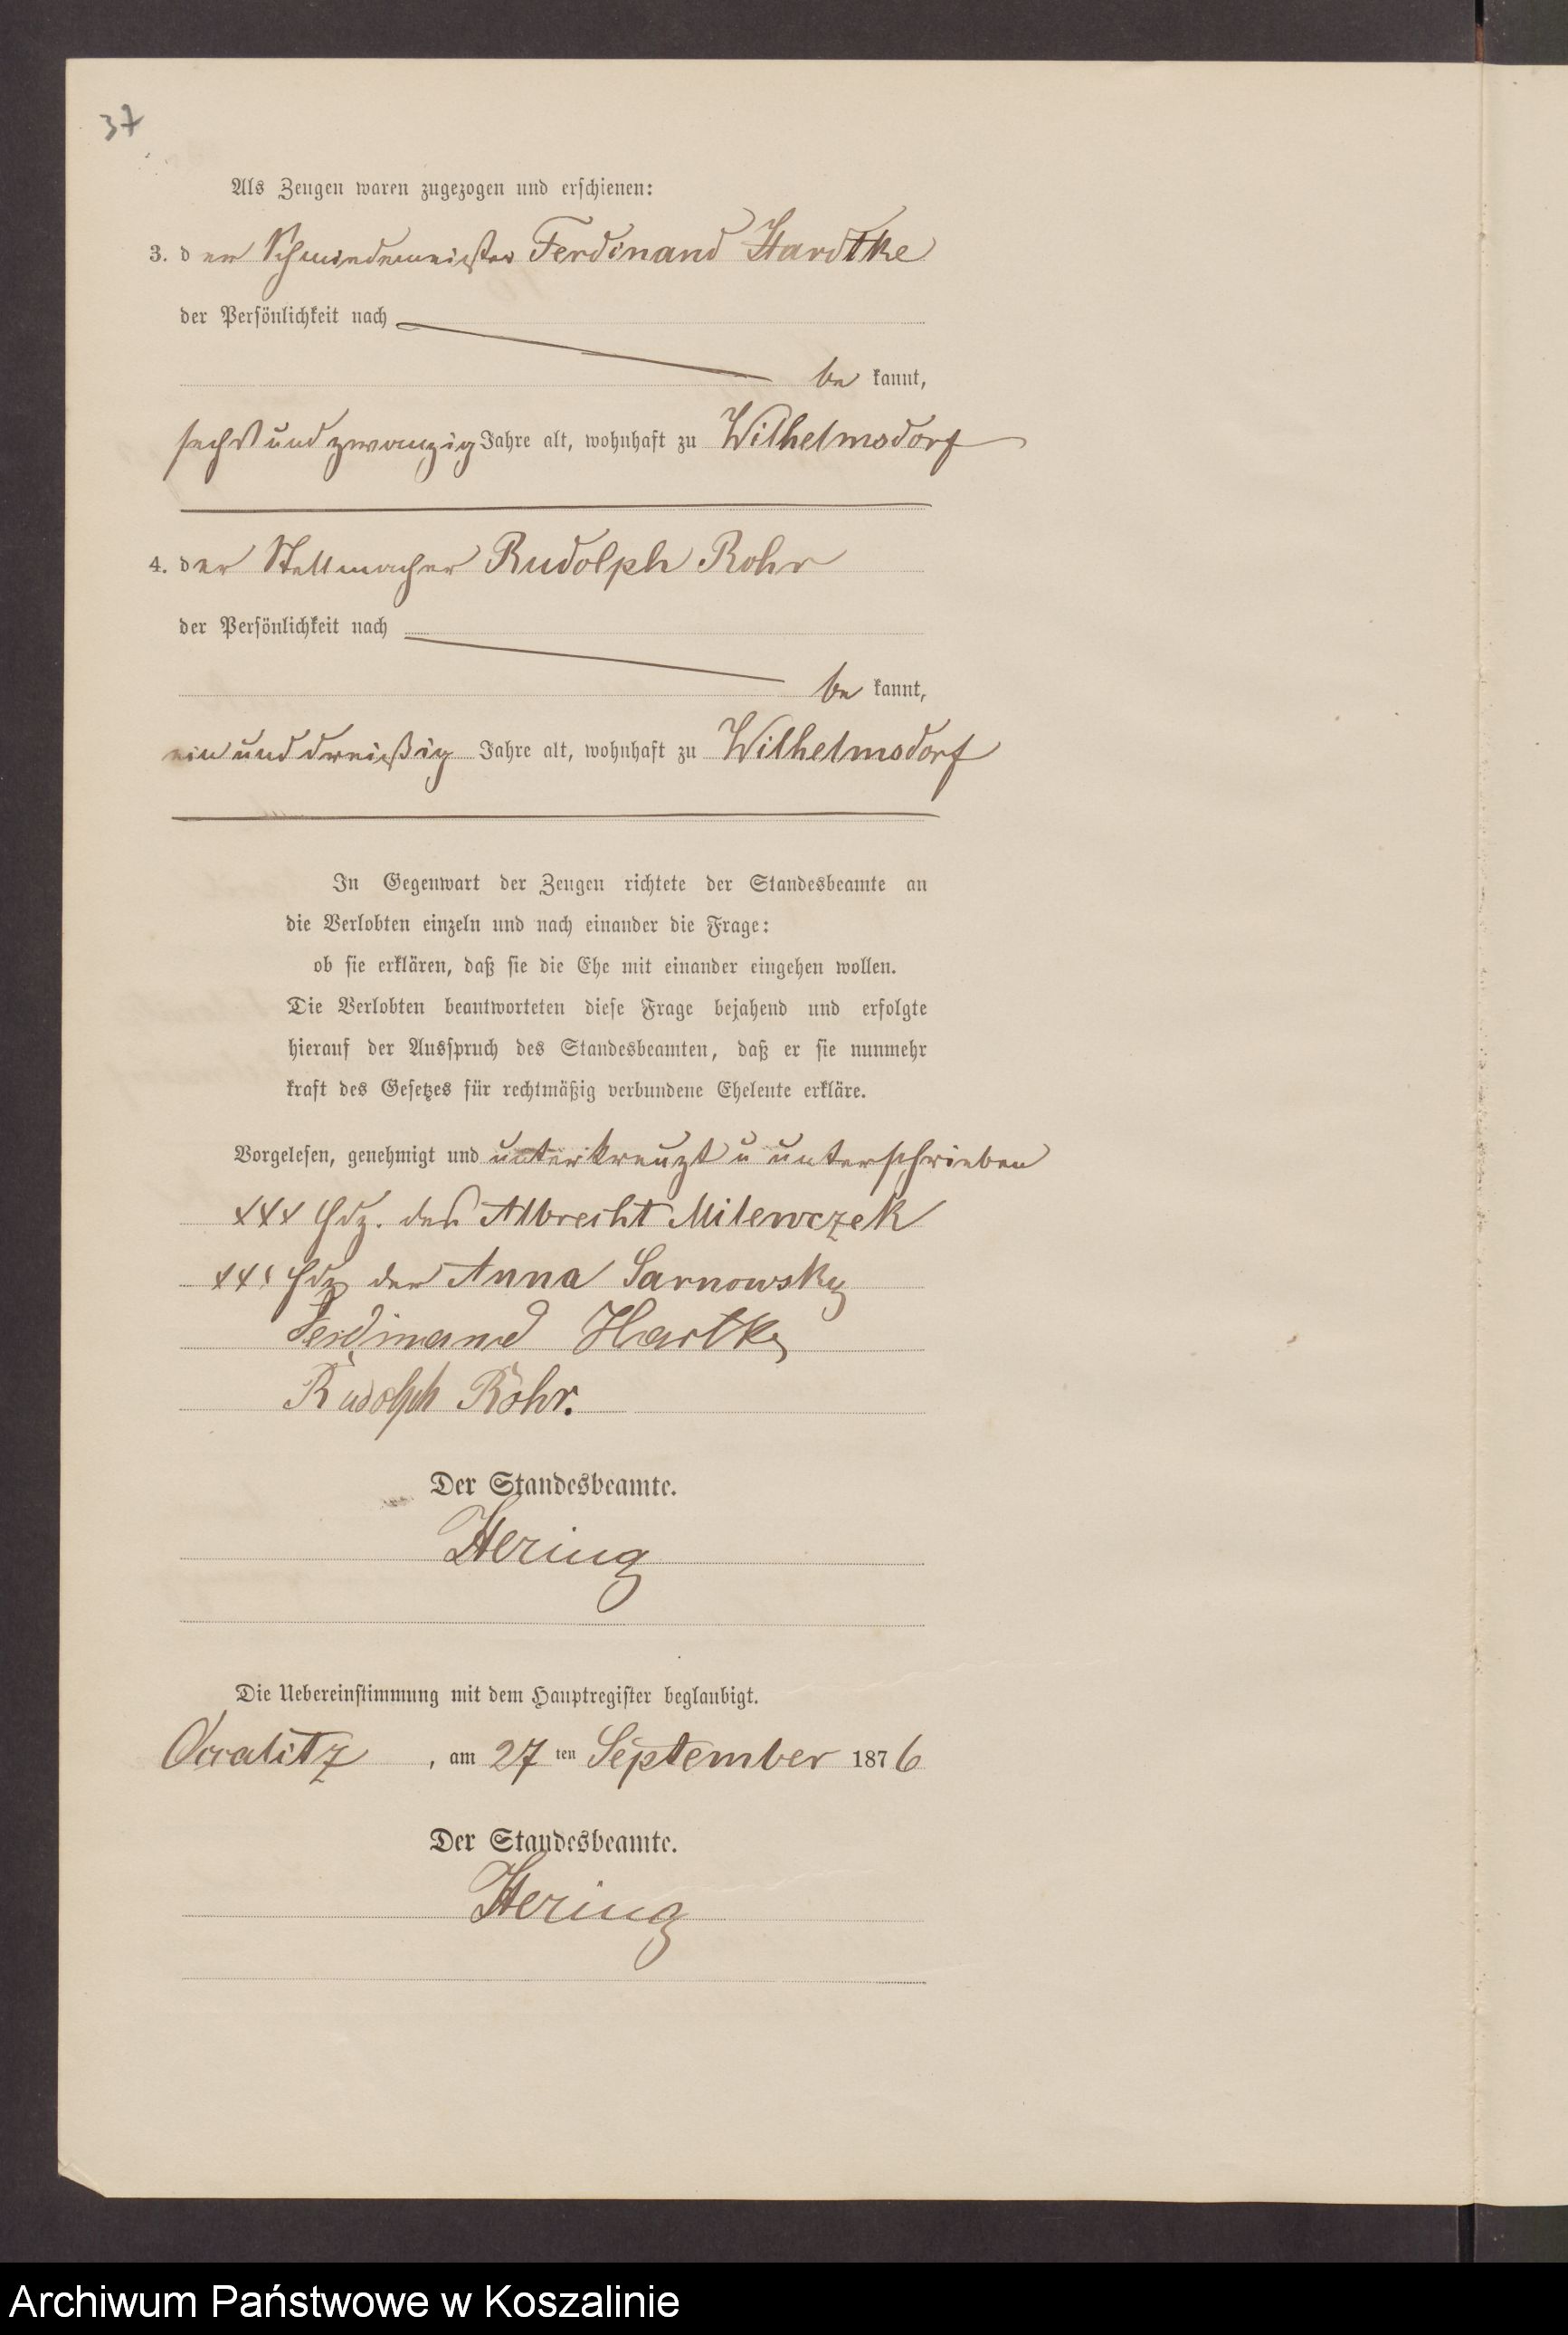 37
Als Zeugen waren zugezogen und erschienen:
3. der Schmiedemeister Ferdinand Hardtke
der Persönlichkeit nach
be kannt,
sechs und zwanzig Jahre alt, wohnhaft zu Wilhelmsdorf
4. der Stellmacher Rudolph Rohr
der Persönlichkeit nach
be kannt,
ein und dreißig Jahre alt, wohnhaft zu Wilhelmsdorf
In Gegenwart der Zeugen richtete der Standesbeamte an
die Verlobten einzeln und nach einander die Frage:
ob sie erklären, daß sie die Ehe mit einander eingehen wollen.
Die Verlobten beantworteten diese Frage bejahend und erfolgte
hierauf der Ausspruch des Standesbeamten, daß er sie nunmehr
kraft des Gesetzes für rechtmäßig verbundene Eheleute erkläre.
Vorgelesen, genehmigt und unterkreuzt u unterschrieben
xxx Hdz. des Albrecht Milewczek
xxx Hdz der Anna Sarnowsky
Ferdinand Hartke
Rudolph Rohr.
Der Standesbeamte.
Hering
Die Uebereinstimmung mit dem Hauptregister beglaubigt.
, am 27 ten September 1876
Der Standesbeamte.
Hering
Archiwum Państwowe w Koszalinie